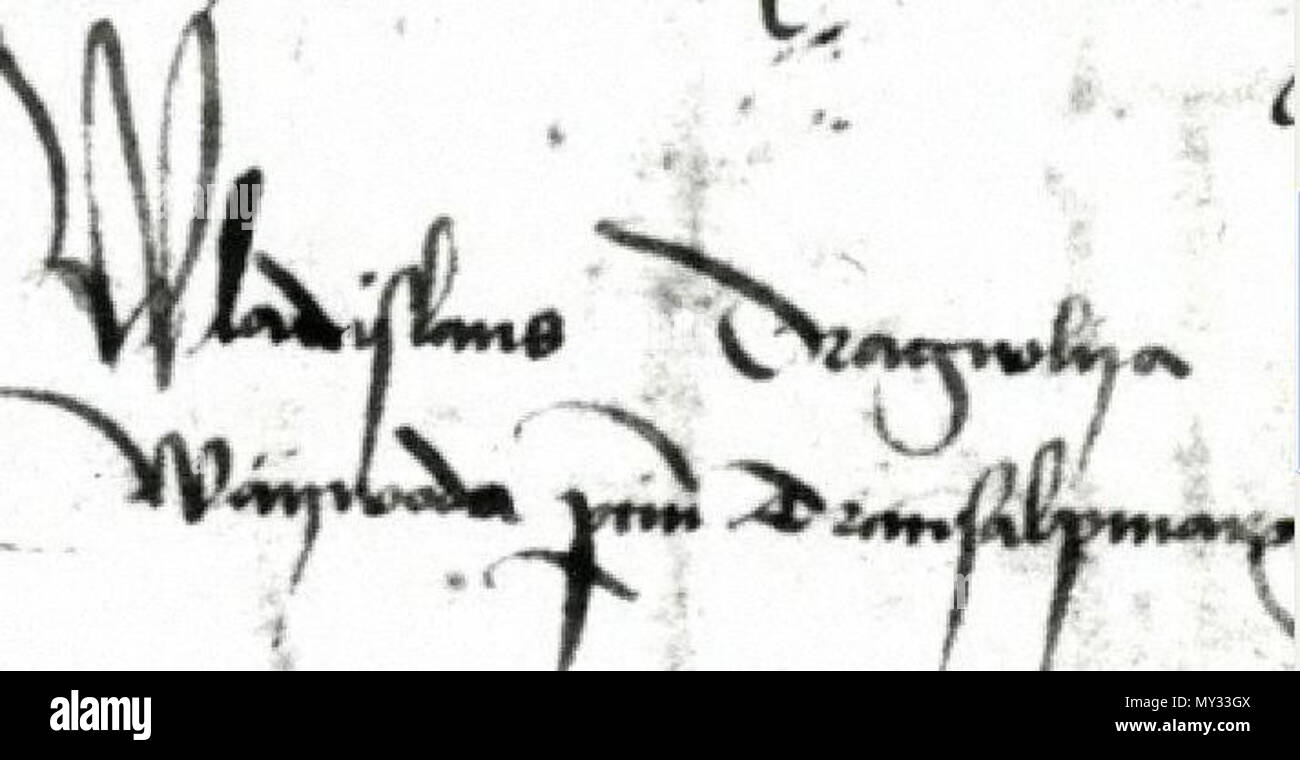 Wladislaus Dragwlya
Waywoda p̱ciu Transalpinarꝝ
alamy
Image ID: MY33GX
www.alamy.com